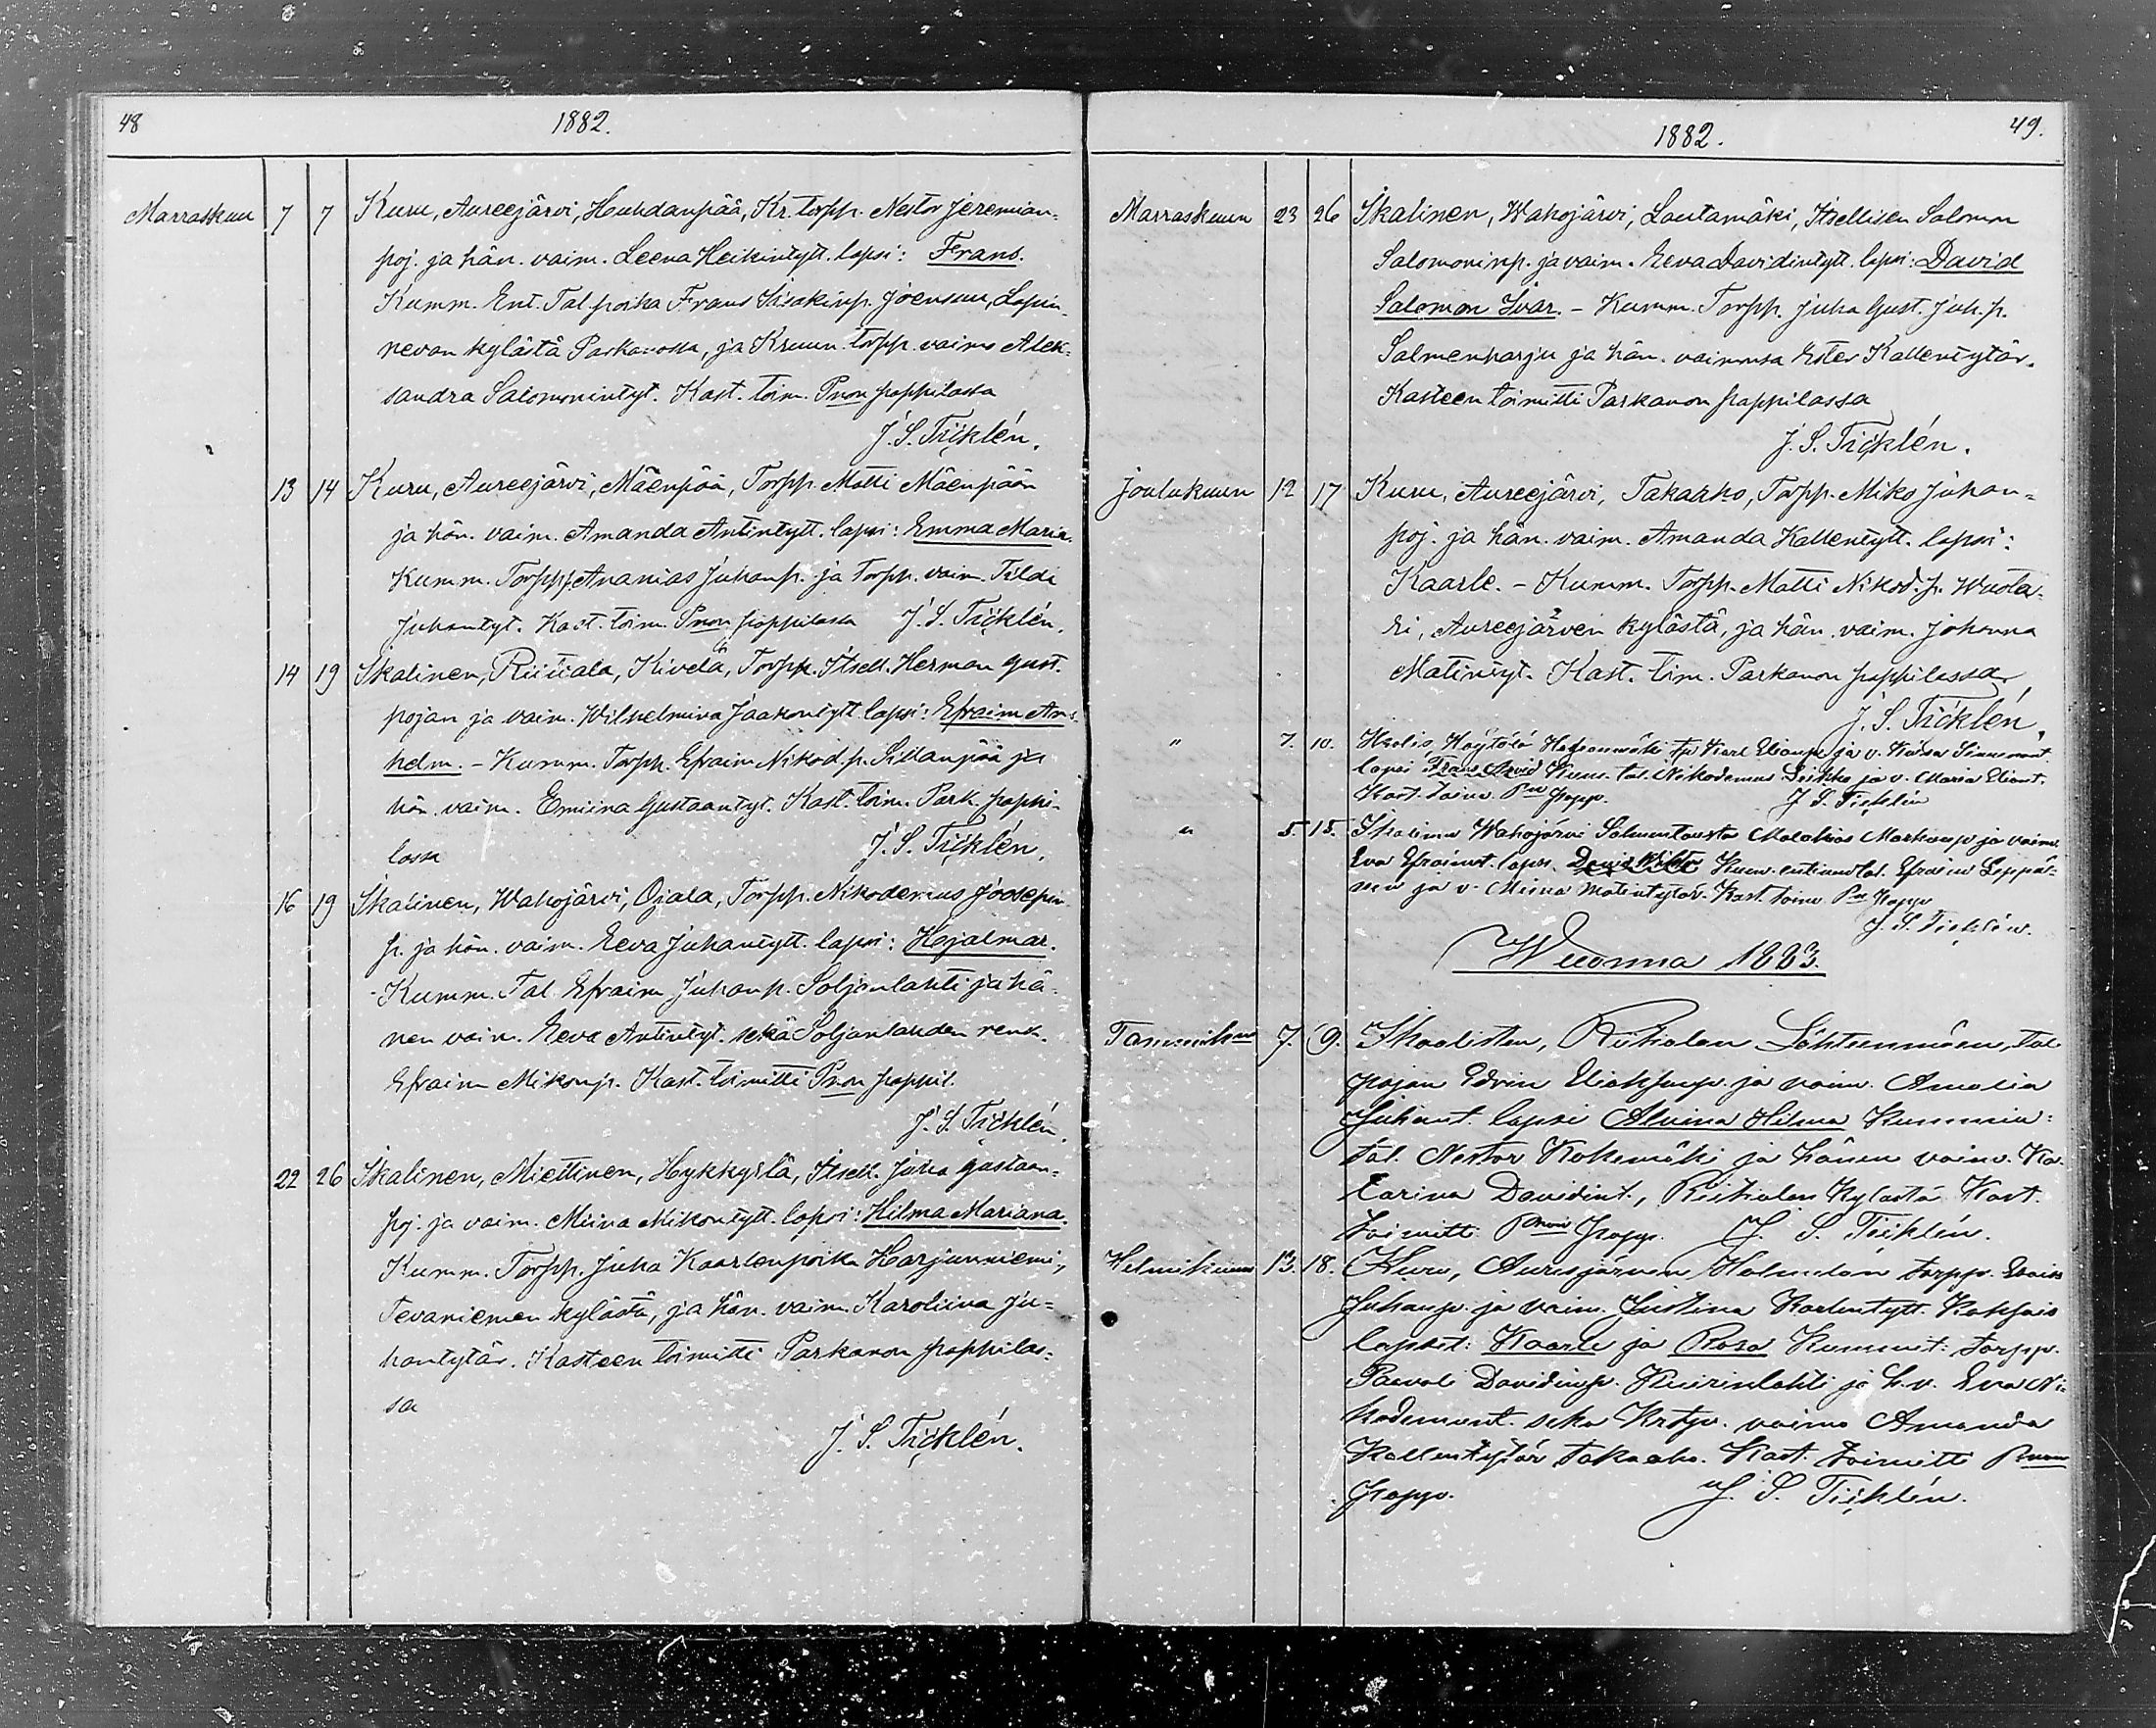 48
1882.
Marraskuu 7 7 Kuru, Aureejärvi, Huhdanpää, Kr. torpp. Nestor Jeremian-
poj. ja hän. vaim. Leena Heikintytt. lapsi: Frans.
Kumm. Ent. Tal. poika Frans Iisakinp. Joensuu, Lapin-
nevan kylästä Parkanossa, ja Kruun. torpp. vaimo Alek-
sandra Salomonintyt. Kast. toim. Pnon pappilassa
J. S. Ticklén.
13 14 Kuru, Aureejärvi, Mäenpää, Torpp. Matti Mäenpään
ja hän. vaim. Amanda Antintytt. lapsi: Emma Maria.
Kumm. Torpp. Ananias Juhanp. ja Torpp. vaim. Tilda
Juhantyt. Kast. toim. Pnon pappilassa J. S. Ticklén.
14 19 Ikalinen, Riitiala, Kivelä, Torpp. Itsell. Herman Gust.
pojan ja vaim. Wilhelmina Jaakontytt. lapsi: Efraim Ans-
helm. - Kumm. Torpp. Efraim Nikod. p. Sillanpää ja
hän. vaim. Emiina Gustaantyt. Kast. toim. Park. pappi-
lassa J. S. Ticklén.
16 19 Ikalinen, Wahojärvi, Ojala, Torpp. Nikodemus Joosepin
p. ja hän. vaim. Eeva Juhantytt. lapsi: Hojalmar.
Kumm. Tal. Efraim Juhanp. Soljanlahti ja hä-
nen vaim. Eeva Antintyt. sekä Soljanlahden renk.
Efraim Mikonp. Kast. toimitti Pnon pappil.
J. S. Ticklén.
22 26 Ikalinen, Miettinen, Hykkyslä, Itsell. Juha Gustaan-
poj. ja vaim. Miina Mikontytt. lapsi: Hilma Mariana.
Kumm. Torpp. Juha Kaarlenpoika Harjunniemi,
Tevaniemen kylästä, ja hän. vaim. Karoliina Ju-
hantytär. Kasteen toimitti Parkanon pappilas-
sa
J. S. Ticklén.
1882.
49.
Marraskuun 23 26 Ikalinen, Wahojärvi, Lautamäki, Itsellisen Salomon
Salomoninp. ja vaim. Eeva Davidintytt. lapsi: David
Salomon Ivar. - Kumm. Torpp. Juha Gust. Juh. p.
Salmenharju ja hän. vaimonsa Ester Kallentytär.
Kasteen toimitti Parkanon pappilassa
J. S. Ticklén.
Joulukuun 12 17 Kuru, Aureejärvi, Takaaho, Torpp. Miko Juhan-
poj. ja hän. vaim. Amanda Kallentytt. lapsi:
Kaarle. - Kumm. Torpp. Matti Nikod. p.
Aureejärven kylästä, ja hän. vaim. Johanna
Matintyt. Kast. tim. Parkanon pappilassa
J. S. Ticklén.
" 7. 10. ja v.
lapsi Frans Arvid Kum. tal. Nikodemus ja v. Maria
Kast. toim. Pnon papp. J. S. Ticklén
" 5. 15. Ikalinen Wahojärvi Malakias Markusp. ja vaim.
Eva Efraimt. laps. Kum. Efraim Leppä-
ja v. Miina Matintytär. Kast. toim. Pnon papp.
J. S. Ticklén.
Wuonna 1883.
Tammikuu 7. 9. Ikaalisten, Riitialan Lähteenmäen, tal.
pojan Edvin ja vaim. Amalia
Juhant. lapsi Alviina Hilma Kummin:
tal. Nestor Kokemäki ja hänen vaim. Ka-
tarina Davidint., Riitialan Kylästä. Kast.
toimitti Pnon papp. J. S. Ticklén.
Helmikuun 13. 18. Kuru, Aureejärven torpp.
Juhanp. ja vaim. Justina Kaksois
lapset: Kaarle ja Rosa Kummit: torpp.
Paavali Davidinp. ja h. v. Eva Ni-
kodemunt. seka vaimo Amanda
Kallentytär Takaaho. Kast. toimitti Pnon
papp. J. S. Ticklén.